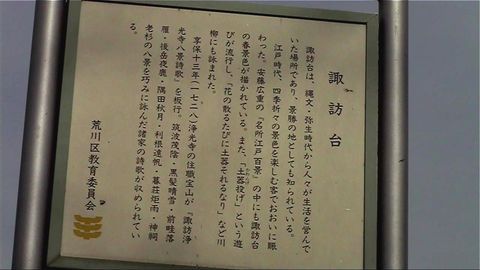 諏訪台
諏訪台は、縄文・弥生時代から人々が生活を営んで
いた場所であり、景勝の地としても知られている。
江戸時代、四季折々の景色を楽しむ客でおおいに賑
わった。安藤広重の「名所江戸百景」の中にも諏訪台
の春景色が描かれている。また、「土器投げ」という遊
びが流行し、「花の散るたびに土器それるなり」など川
柳にも詠まれた。
享保十三年(一七二八)浄光寺の住職宝山が『諏訪浄
光寺八景詩歌』を板行。筑波茂陰・黒髪晴雪・前畦落
雁・後岳夜鹿・隅田秋月・利根遠帆・暮荘炊雨・神祠
老杉の八景を巧みに詠んだ諸家の詩歌が収められてい
る。
荒川区教育委員会